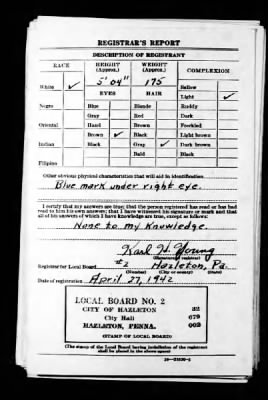 REGISTRAR'S REPORT
DESCRIPTION OF REGISTRANT
RACE
HEIGHT (Approx.)
WEIGHT (Approx.)
COMPLEXION
5' 04"
175
White ✓
EYES
HAIR
Sallow
Light ✓
Negro
Blue
Blonde
Ruddy
Gray
Red
Dark
Oriental
Hazel
Brown
Freckled
Brown ✓
Black
Light brown
Indian
Black
Gray ✓
Dark brown
Bald
Black
Filipino
Other obvious physical characteristics that will aid in identification
Blue mark under right eye.
I certify that my answers are true; that the person registered has read or has had
read to him his own answers; that I have witnessed his signature or mark and that
all of his answers of which I have knowledge are true, except as follows:
None to my Knowledge.
Karl H. Young
(Signature of registrar)
Registrar for Local Board #2 Hazleton, Pa.
(Number) (City or county)
Date of registration April 27, 1942
LOCAL BOARD NO. 2
CITY OF HAZLETON 32
City Hall 679
HAZLETON, PENNA. 002
(STAMP OF LOCAL BOARD)
(The stamp of the Local Board having jurisdiction of the registrant
shall be placed in the above space)